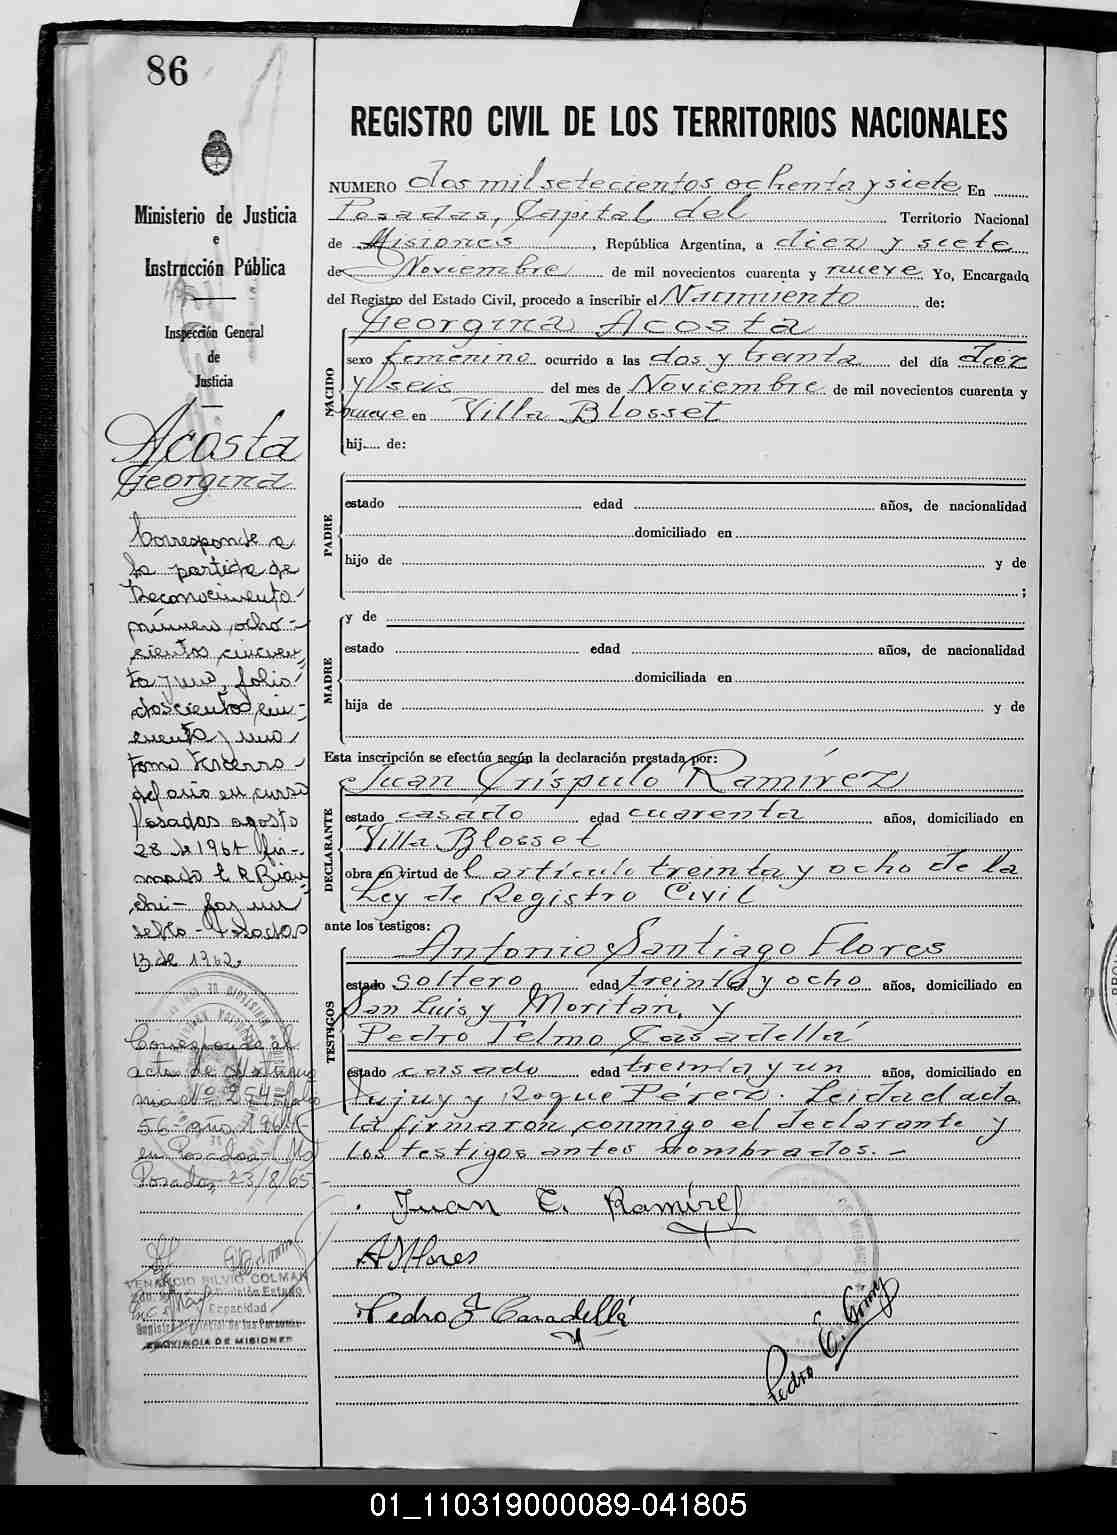 86
Ministerio de Justicia
e
Instrucción Pública
Inspección General
de
Justicia
Acosta
Georgina
Corresponde a
la partida de
Reconocimiento
número ocho-
cientos cincuen-
ta y uno, folio
doscientos cin-
cuenta y uno
tomo tercero
del año en curso
Posadas agosto
28 de 1961
13 de 1962.
Corresponde al
acta de
Nº 254 folio
56
en Posadas
Posadas, 23/8/65.-
VENANCIO SILVIO COLMAN
Capacidad
Registro Provincial de las Personas
PROVINCIA DE MISIONES
REGISTRO CIVIL DE LOS TERRITORIOS NACIONALES
NUMERO dos mil setecientos ochenta y siete En
Posadas, Capital del Territorio Nacional
de Misiones, República Argentina, a diez y siete
de Noviembre de mil novecientos cuarenta y nueve Yo, Encargado
del Registro del Estado Civil, procedo a inscribir el Nacimiento de:
NACIDO
Georgina Acosta
sexo femenino ocurrido a las dos y treinta del día diez
y seis del mes de Noviembre de mil novecientos cuarenta y
nueve en Villa Blosset
hij.... de:
PADRE
estado edad años, de nacionalidad
domiciliado en
hijo de y de
;
MADRE
y de
estado edad años, de nacionalidad
domiciliada en
hija de y de
Esta inscripción se efectúa según la declaración prestada por:
DECLARANTE
Juan Críspulo Ramírez
estado casado edad cuarenta años, domiciliado en
Villa Blosset
obra en virtud del artículo treinta y ocho de la
Ley de Registro Civil
ante los testigos:
TESTIGOS
Antonio Santiago Flores
estado soltero edad treinta y ocho años, domiciliado en
San Luis y Moritán, y
Pedro Telmo Casadellá
estado casado edad treinta y un años, domiciliado en
Jujuy y Roque Pérez. Leida el acta
la firmaron conmigo el declarante y
los testigos antes nombrados.-
Juan C. Ramírez
A S Flores
Pedro T Casadellá
Pedro E.
01_110319000089-041805